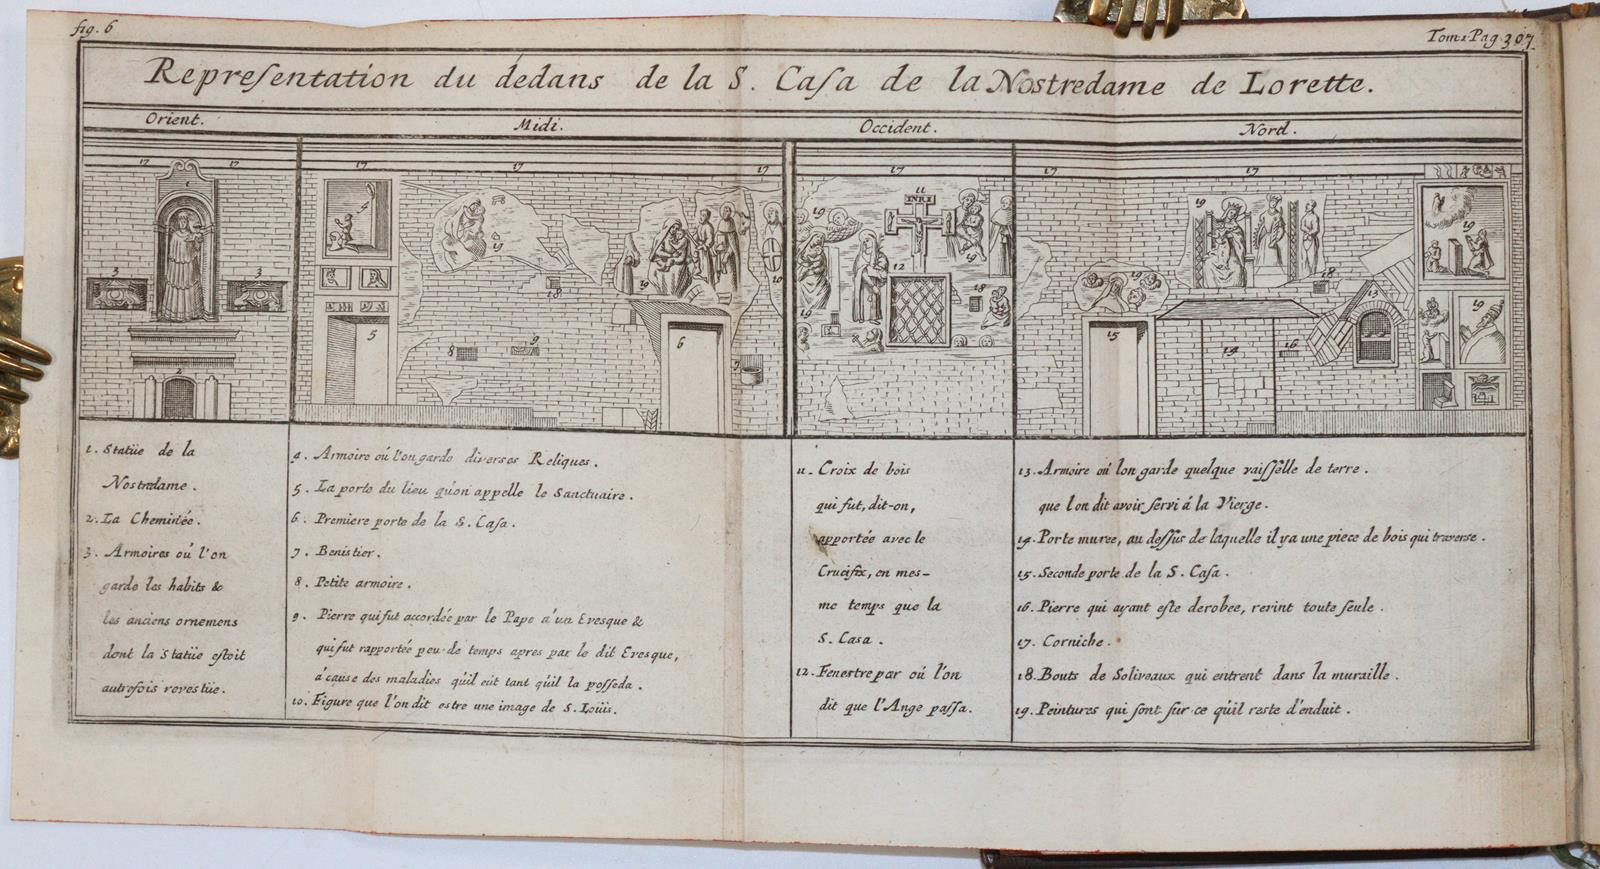 fig. 6
Tom 1 Pag. 307.
Repreſentation du dedans de la S. Caſa de la Nostredame de Lorette.
Orient.
Midi.
Occident.
Nord.
1. Statüe de la
Nostredame.
2. La Cheminée.
3. Armoires où l'on
garde les habits &
les anciens ornemens
dont la Statüe eſtoit
autrefois revestüe.
4. Armoire où l'on garde diverses Reliques.
5. La porte du lieu qu'on appelle le Sanctuaire.
6. Premiere porte de la S. Caſa.
7. Benistier.
8. Petite armoire.
9. Pierre qui fut accordée par le Pape á un Evesque &
qui fut rapportée peu de temps apres par le dit Evesque,
á cause des maladies qu'il eût tant qu'il la poſſeda.
10. Figure que l'on dit estre une image de S. Loüis.
11. Croix de bois
qui fut, dit-on,
apportée avec le
Crucifix, en mes-
me temps que la
S. Casa.
12. Fenestre par où l'on
dit que l'Ange paſſa.
13. Armoire où lon garde quelque vaiſſelle de terre.
que lon dit avoir ſervi á la Vierge.
14. Porte murée, au deſſus de laquelle il y a une piece de bois qui traverse.
15. Seconde porte de la S. Caſa.
16. Pierre qui ayant eſte derobee, revint toute ſeule.
17. Corniche.
18. Bouts de Soliveaux qui entrent dans la muraille.
19. Peintures qui ſont ſur ce qu'il reste d'enduit.
INRI